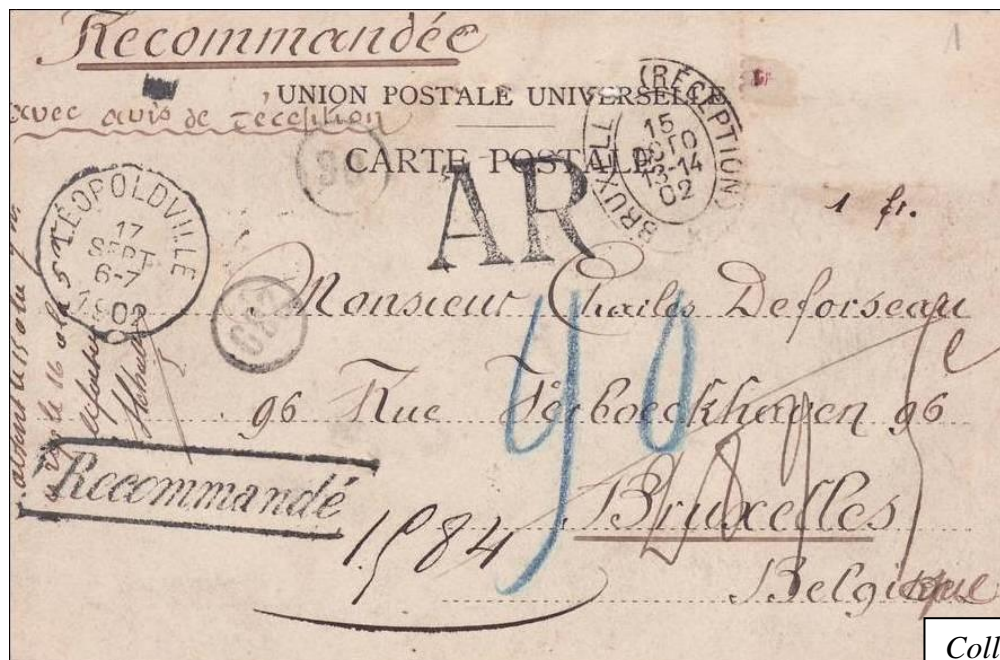 Recommandée
1
UNION POSTALE UNIVERSELLE
avec avis de réception
CARTE POSTALE
AR
BRUXELLES (RÉCEPTION)
15
OCTO
13-14
02
1 fr.
LÉOPOLDVILLE
17
SEPT
6-7
1902
Monsieur Charles Deforseau
90
96 Rue Verboeckhaven 96
Recommandé
Bruxelles
1584
Belgique
Coll